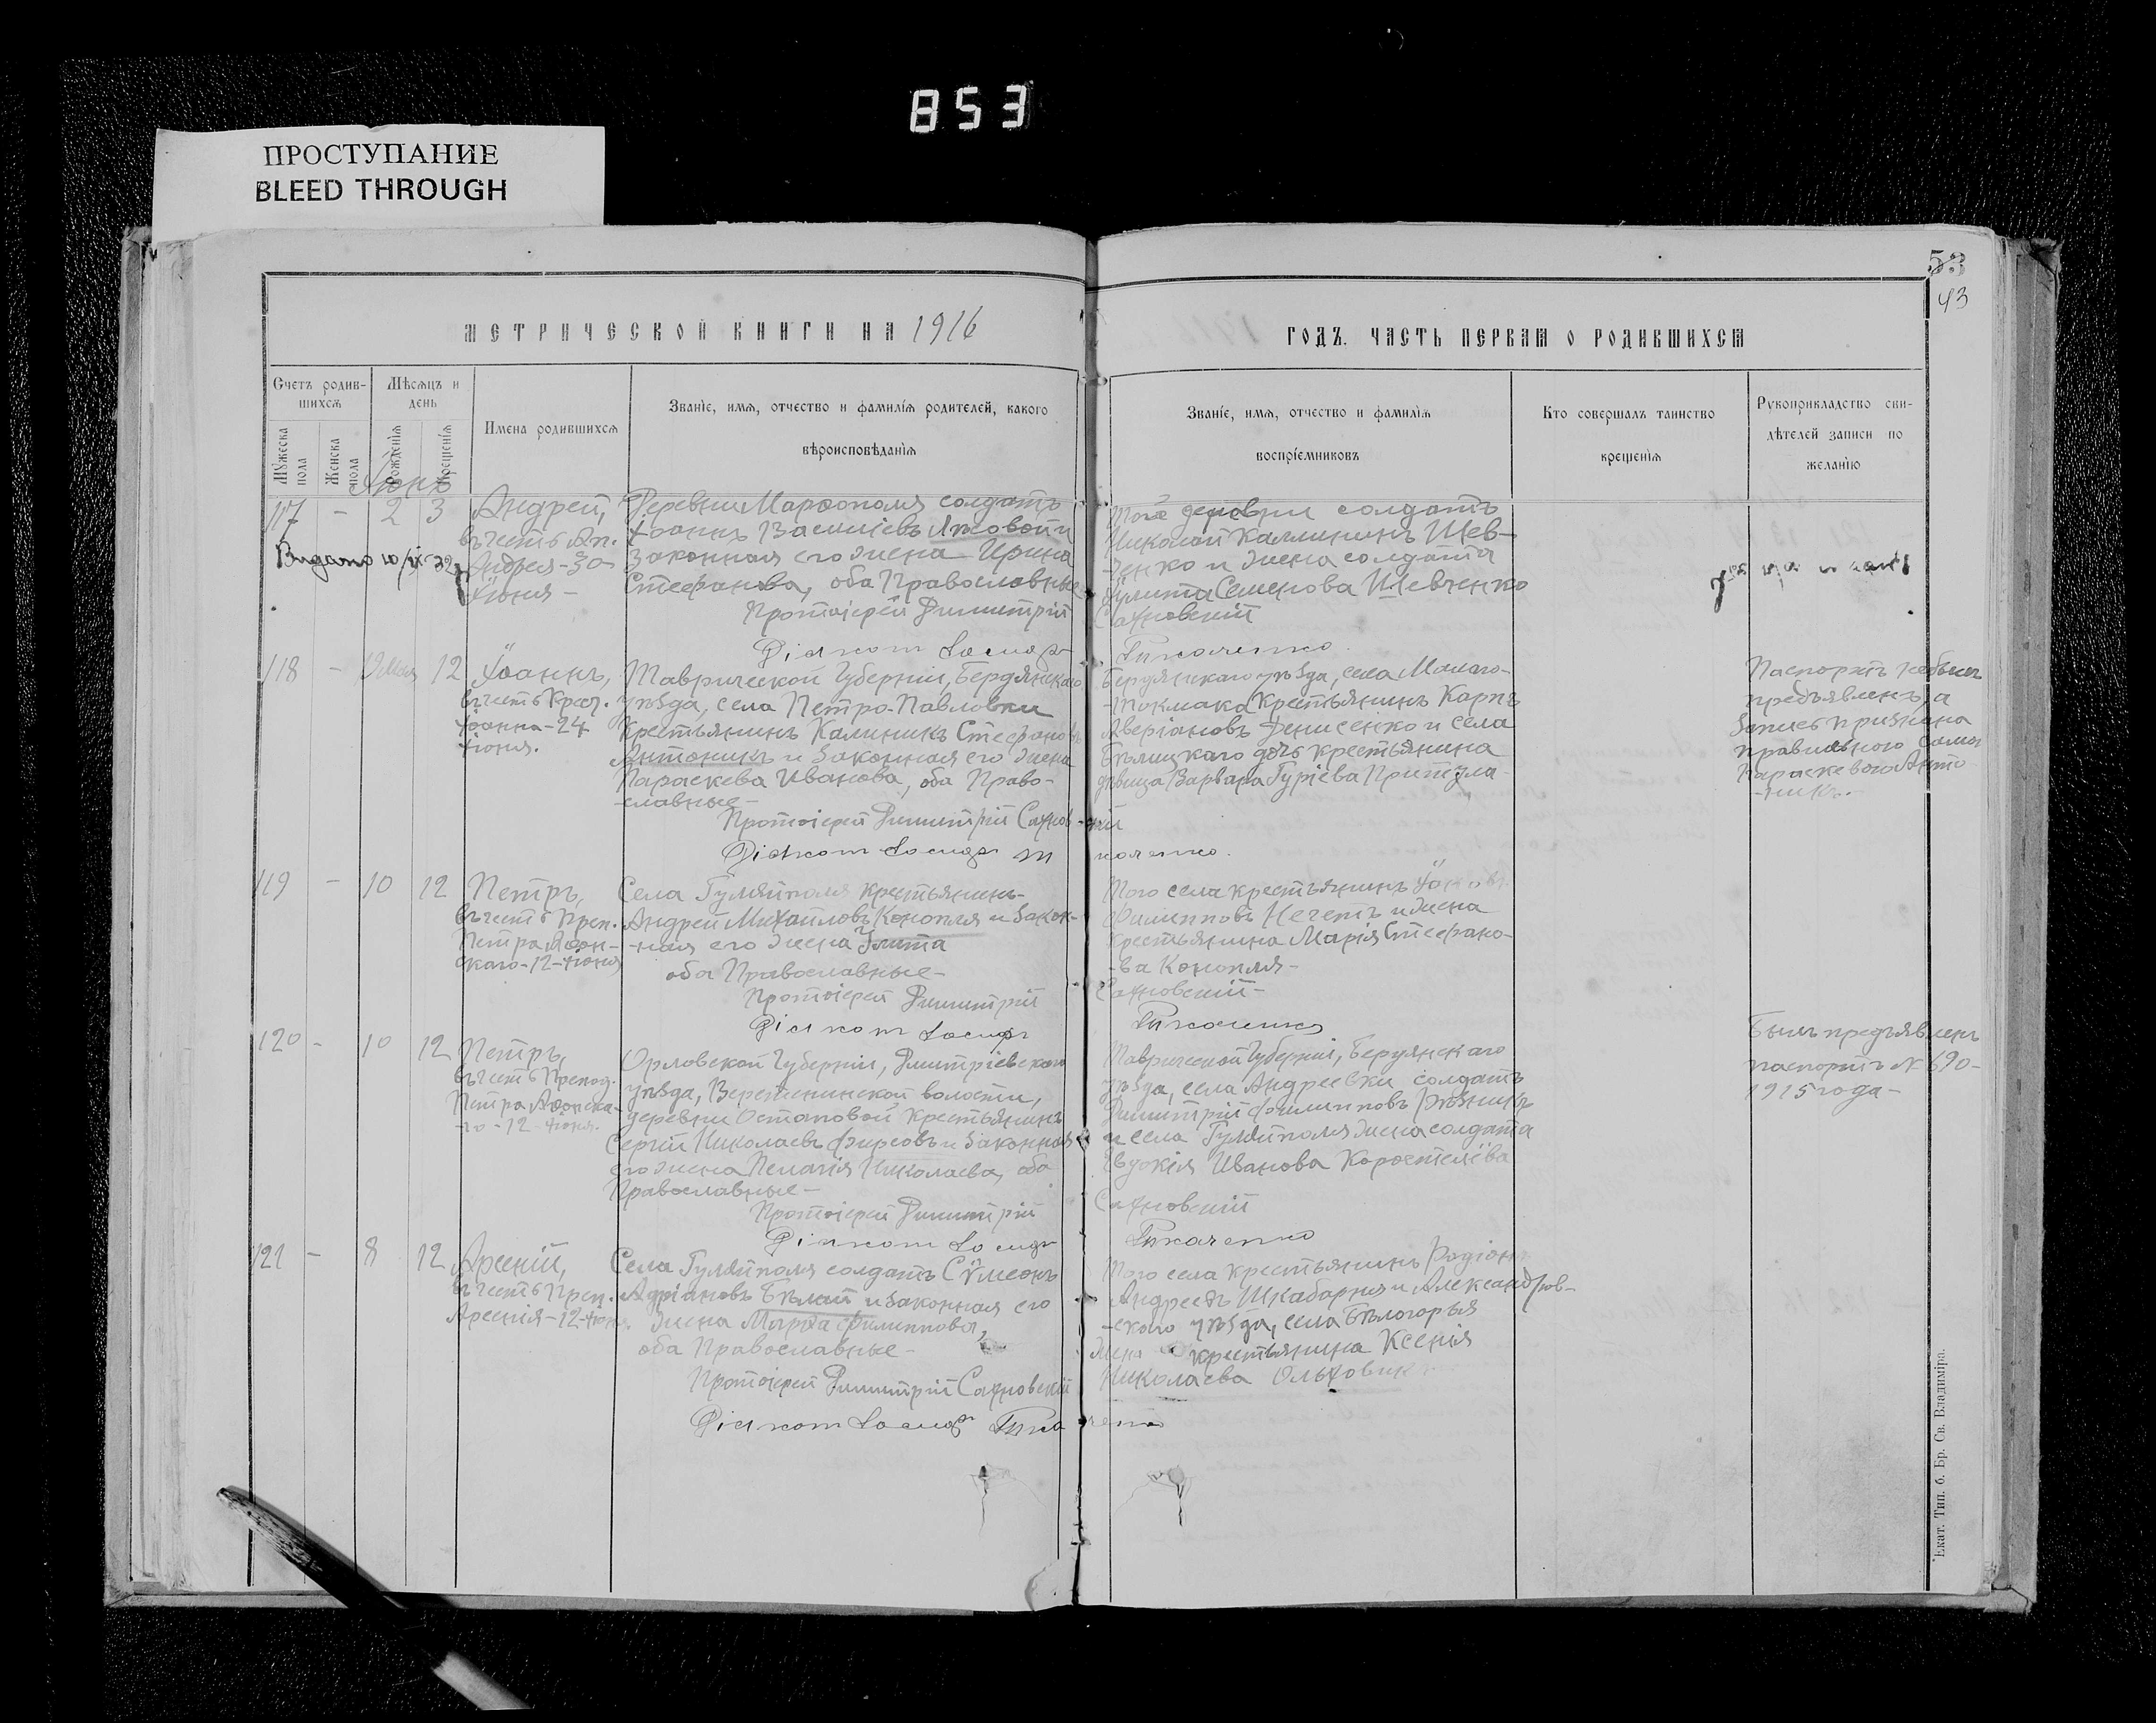 853
ПРОСТУПАНИЕ
BLEED THROUGH
53
43
МЕТРИЧЕСКОЙ КНИГИ НА 1916
ГОДЪ. ЧАСТЬ ПЕРВАЯ О РОДИВШИХСЯ
Счетъ родив-
шихся
Мужеска пола
Женска пола
Мѣсяцъ и
день
Рожденія
Крещенія
Имена родившихся
Званіе, имя, отчество и фамилія родителей, какого
вѣроисповѣданія
Званіе, имя, отчество и фамилія
воспріемниковъ
Кто совершалъ таинство
крещенія
Рукоприкладство сви-
дѣтелей записи по
желанію
Іюнь
117 - 2 3
Андрей,
въ честь Ап.
Андрея-30
Іюня-
Видано 10/XI-32
Деревни Марѳополя солдатъ
Іоаннъ Василіевъ и
законная его жена Ирина
Стефанова, оба Православные
Протоіерей Димитрій Сахновскій
Діаконъ Іосифъ Ткаченко
Тоже деревни солдатъ
Николай Каллиникъ Шев-
ченко и жена солдата
Іулита Семенова Шевченко
118 - 19 Мая 12
Іоаннъ,
въ честь Крест.
Іоанна-24
Іюня.
Таврической Губерніи, Бердянскаго
уѣзда, села Петро-Павловки
Крестьянинъ Калиникъ Стефановъ
Антоникъ и законная его жена
Параскева Иванова, оба Право-
славные-
Протоіерей Димитрій Сахновскій
Діаконъ Іосифъ Ткаченко.
Бердянскаго уѣзда, села Малаго-
Токмака Крестьянинъ Карпъ
Аверіановъ Денисенко и села
Бѣлицкаго дочь крестьянина
дѣвица Варвара Гуріева Притула-
Паспортъ не былъ
предъявленъ, а
запись признана
правильною самой
Параскевою Анто-
никъ.-
119 - 10 12
Петръ,
въ честь Преп.
Петра Аѳон-
скаго-12-Іюня
Села Гуляйполя крестьянинъ
Андрей Михайловъ Конопля и закон-
-ная его жена Улита
оба Православные-
Протоіерей Димитрій Сахновскій-
Діаконъ Іосифъ Ткаченко
Того села крестьянинъ
Филипповъ Нечетъ и жена
крестьянина Марія Стефано-
-ва Конопля-
120 - 10 12
Петръ,
въ честь Препод.
Петра Аѳонска-
-го-12 Іюня.
Орловской Губерніи, Димитріевскаго
уѣзда, Веретенинской волости,
деревни Остаповой крестьянинъ
Сергій Николаевъ Фирсовъ и законная
его жена Пелагія Николаева, оба
Православные-
Протоіерей Димитрій Сахновскій
Діаконъ Іосифъ Ткаченко
Таврической Губерніи, Бердянскаго
уѣзда, села Андреевки солдатъ
Димитрій Филипповъ Рѣзникъ
и села Гуляйполя жена солдата
Евдокія Иванова Коростелева
Былъ предъявленъ
паспортъ № 690-
1915 года-
121 - 8 12
Арсеній,
въ честь Преп.
Арсенія-12-Іюня.
Села Гуляйполя солдатъ Сѵмеонъ
Адріановъ Бѣлай и законная его
жена Марѳа Филиппова,
оба Православные-
Протоіерей Димитрій Сахновскій
Діаконъ Іосифъ Ткаченко
Того села крестьянинъ Родіонъ
Андреевъ Шкабарня и Александров-
-скаго уѣзда, села Бѣлогорья
жена крестьянина Ксенія
Николаева Ольховикъ
Екат. Тип. б. Бр. Св. Владиміра.